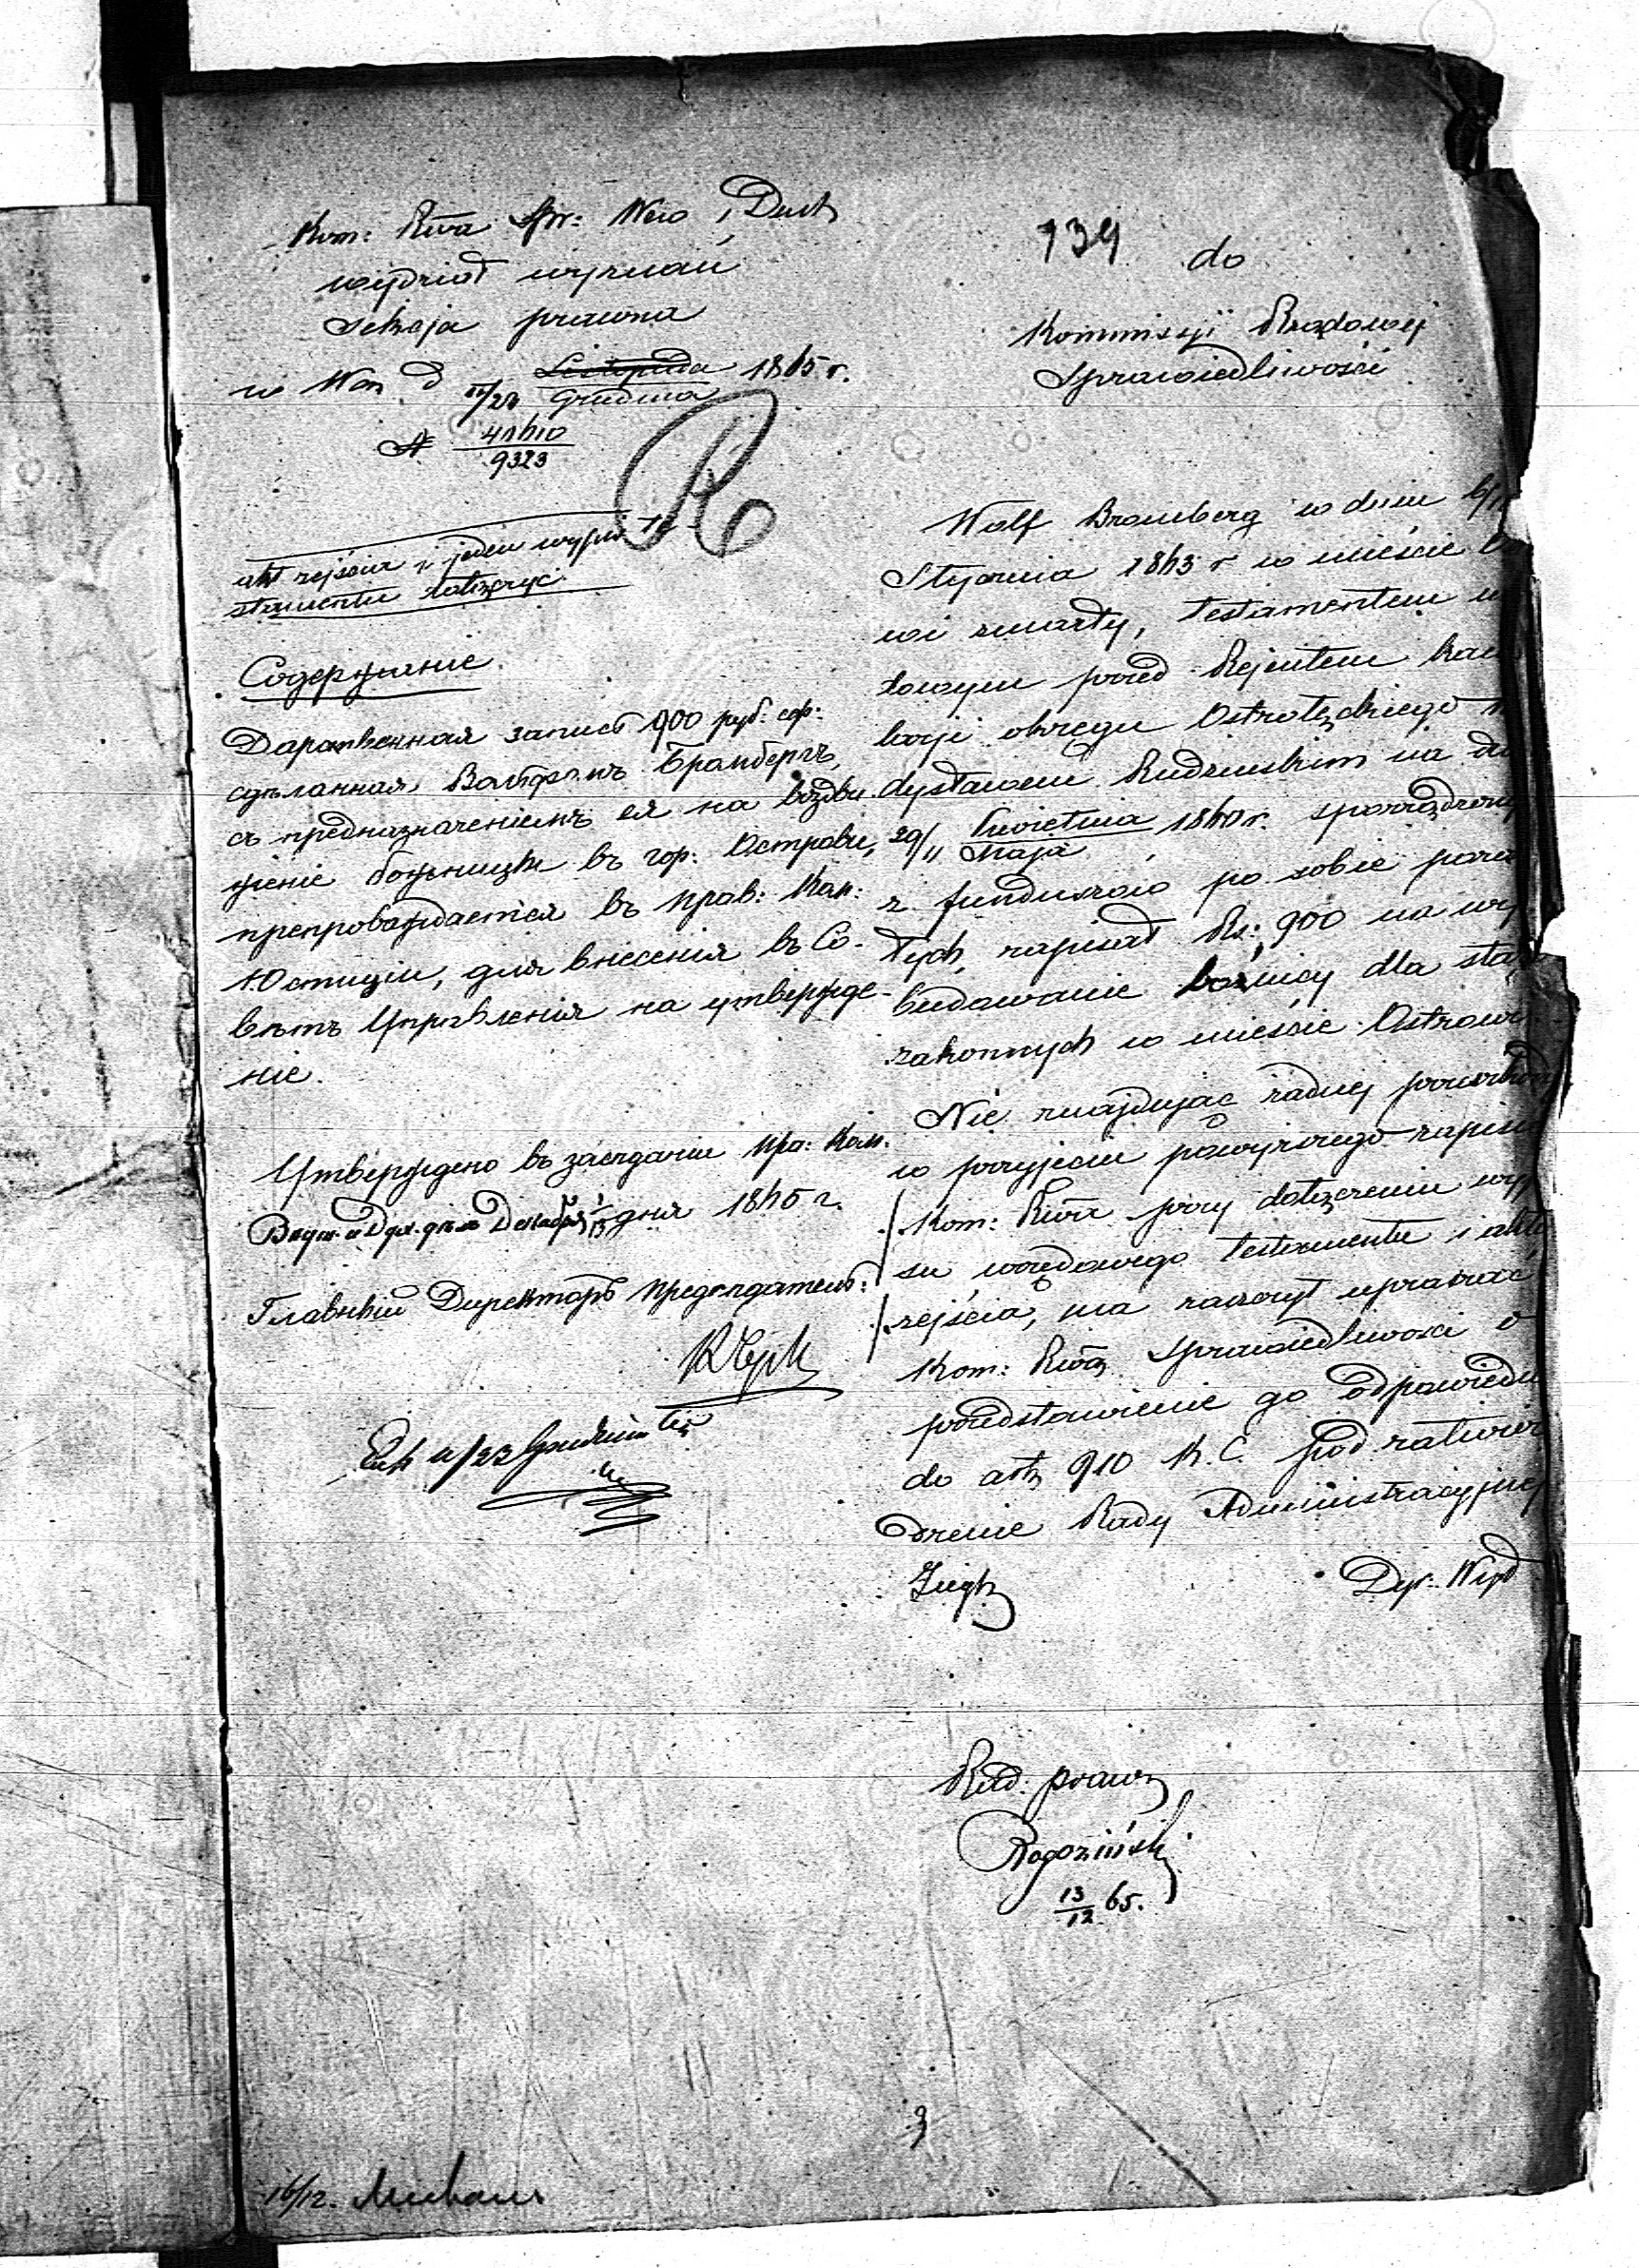 Kom: Rwa Spr: Wew i Duch
wydział wyznań
sekcja prawna
w War d Listopada 1865 r.
Grudnia
№ 41610
9323
akt zejścia i jeden wypis te-
stamentu dołączyć
Содержаніе.
Дарственная запись 900 руб: сер:
сдѣланная Вольфомъ Бромбергъ,
съ предназначеніемъ ея на воздви-
женіе божницы въ гор: Островѣ,
препровождается въ Прав: Ком:
Юстиціи, для внесенія въ Со-
вѣтъ Управленія на утвержде-
ніе.
Утверждено въ засѣданіи Пра: Ком.
Внут. и Дух. дѣлъ Декабря 1/13 дня 1865 г.
Главный Директоръ Предсѣдатель:
739
do
Kommissyi Rządowej
Sprawiedliwości
Wolf Bromberg w dniu 6/1
Stycznia 1863 r w mieście
wi zmarły, testamentem u
dowym przed Rejentem Kan
laryi okręgu Ostrołęckiego
dysławem Rudzińskim na d
29/11 Kwietnia 1860 r. sporządzony
Maja
z funduszów po sobie pozo
łych, zapisał Rs: 900 na wy
budowanie bożnicy dla sta
zakonnych w mieście Ostrowi
Nie znajdując żadnej przeszkody
w przyjęciu powyższego zapisu
Kom: Rwa przy dołączeniu wypi
su urzędowego testamentu i aktu
zejścia, ma zaszczyt upraszać
Kom: Rwą Sprawiedliwości o
przedstawienie go odpowiednio
do art 910 K. C. pod zatwier
dzenie Rady Administracyjnej
Dyr: Wyd
Rad: prawn
Rogoziński
13/12 65.
3
16/12.